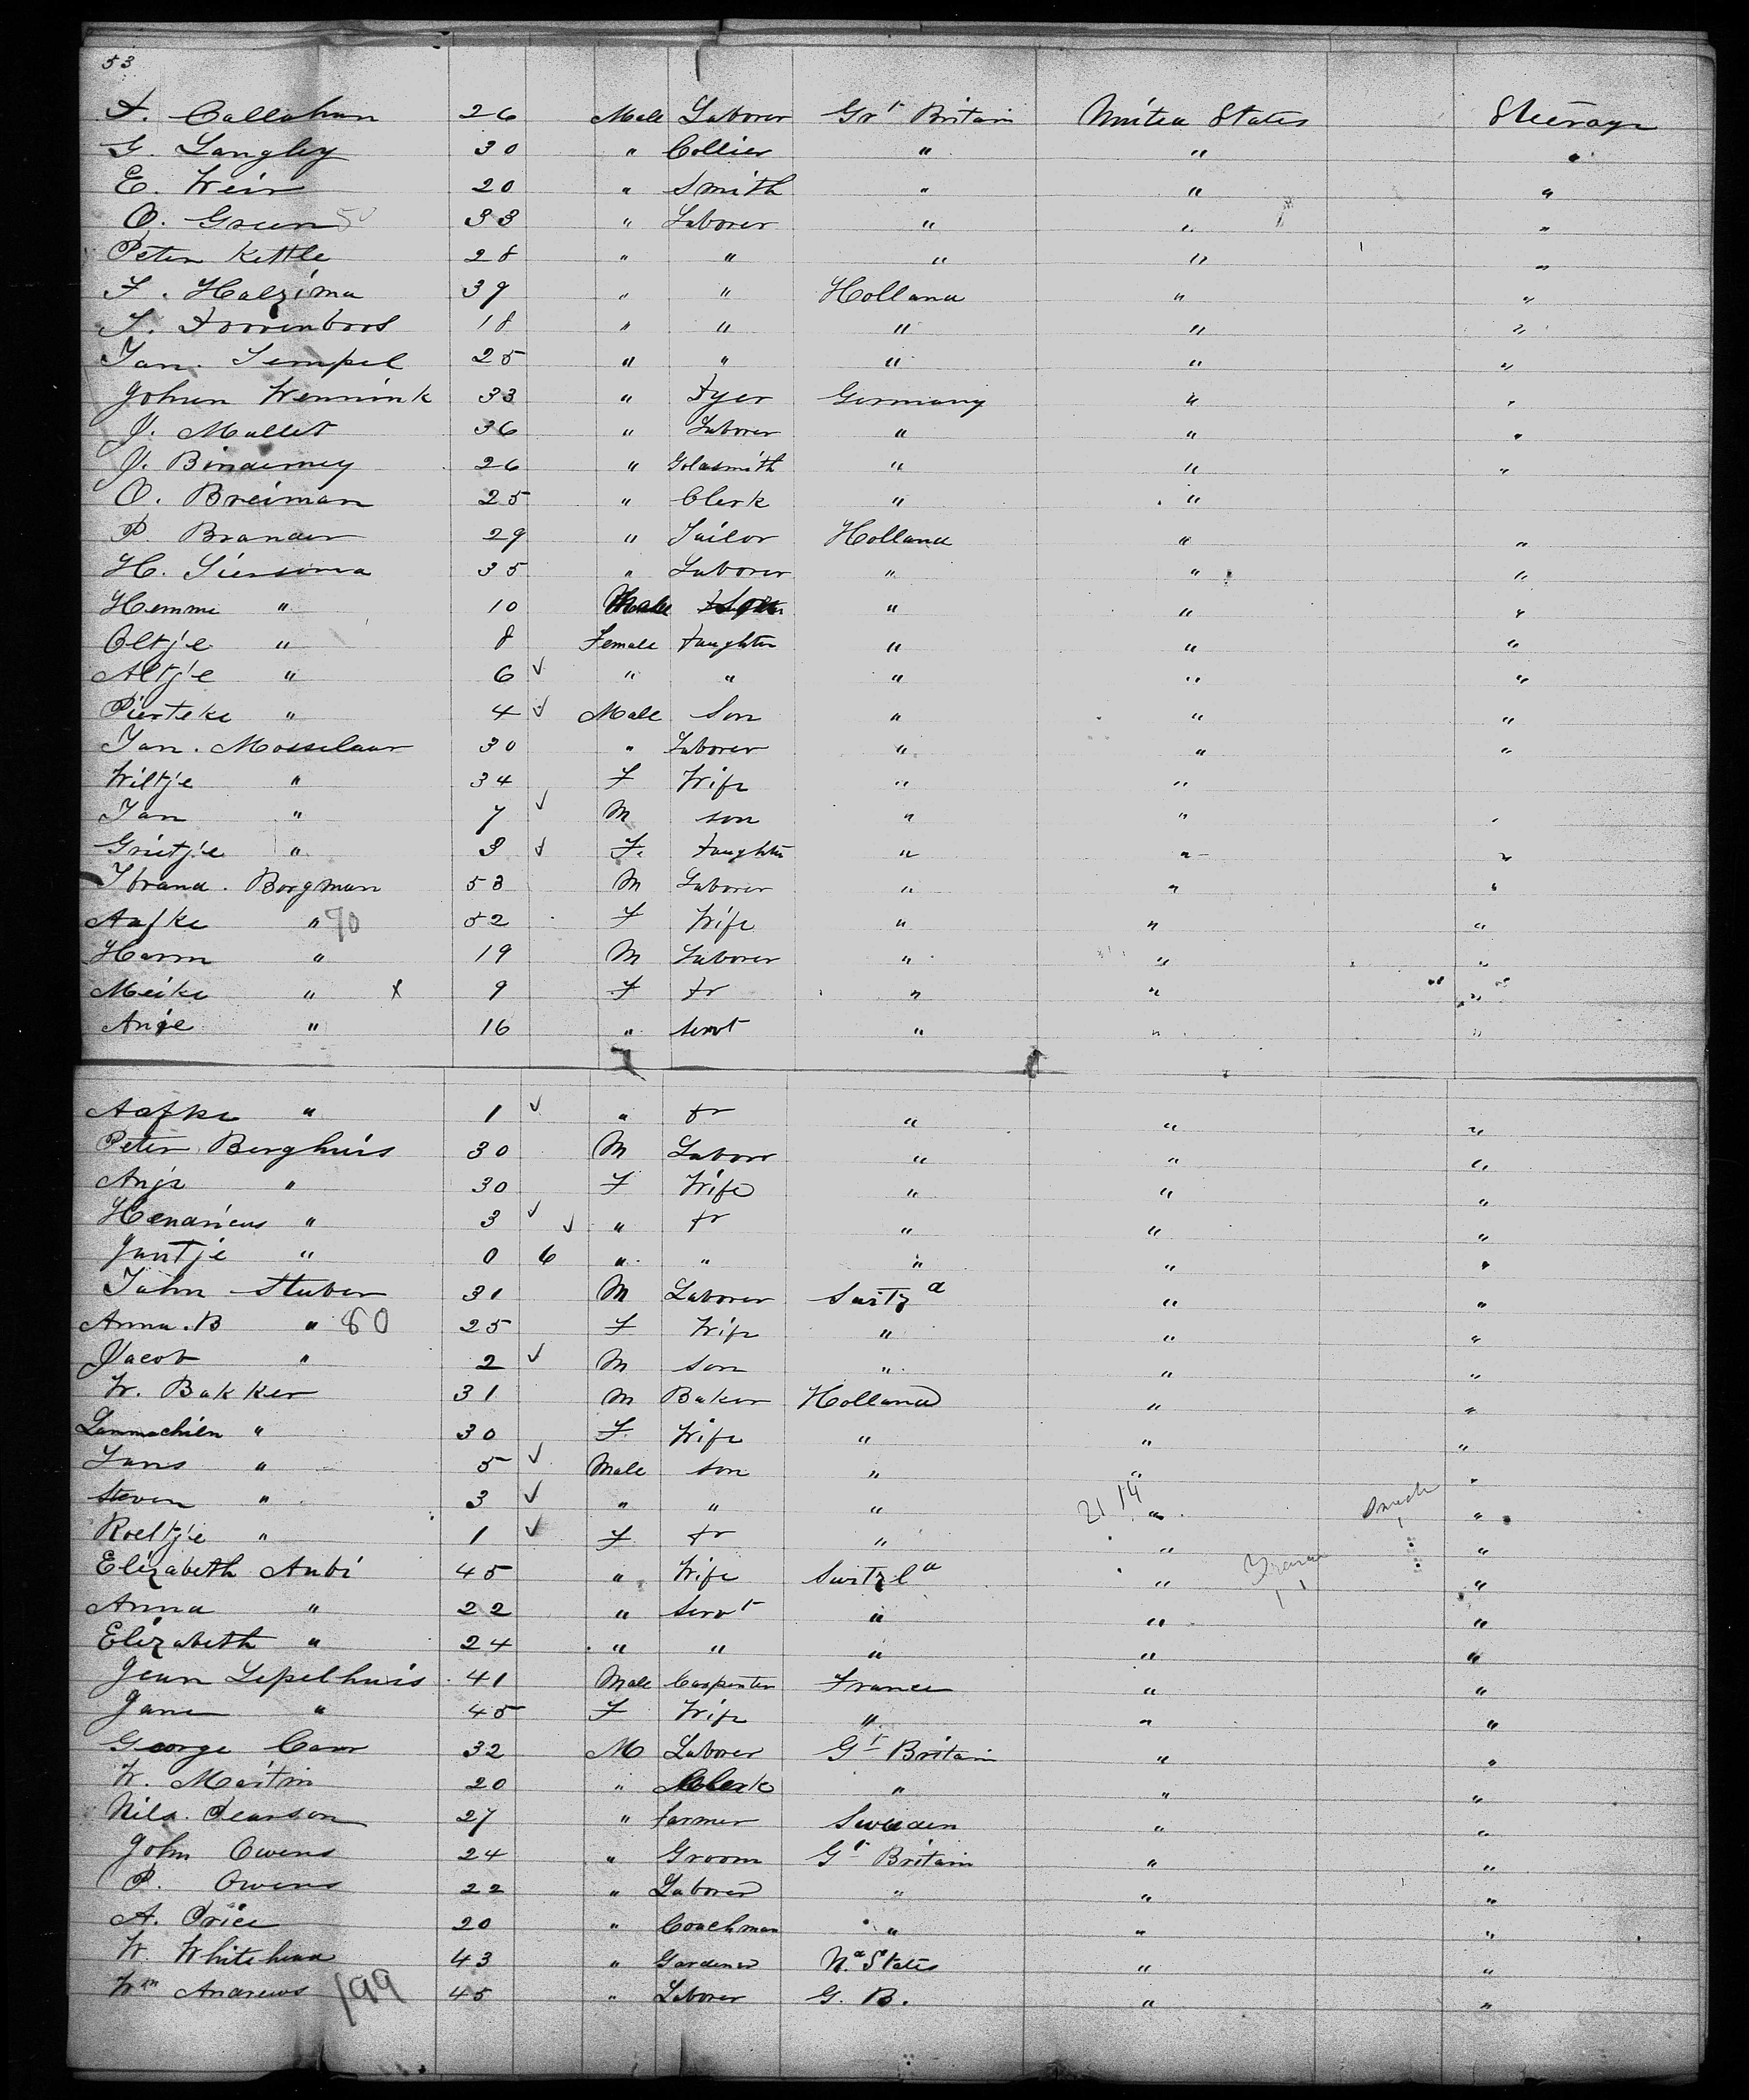 53
D. Callahan 26 Male Laborer Grt Britain United States Steerage
G. Langley 30 " Collier " " "
E. Weir 20 " Smith " " "
O. Green 50 33 " Laborer " " "
Peter Kettle 28 " " " " "
F. Halzima 39 " " Holland " "
T. Doorenbos 18 " " " " "
Jan. Tempel 25 " " " " "
Johan Wennink 33 " Dyer Germany " "
J. Mallet 36 " Laborer " " "
J. Bindemey 26 " Goldsmith " " "
O. Breiman 25 " Clerk " "
P. Brander 29 " Tailor Holland " "
H. Siersema 35 " Laborer " " "
Hemme " 10 Male Son " " "
Eltje " 8 Female Daughter " " "
Altje " 6 ✓ " " " " "
Pierteke " 4 ✓ Male Son " " "
Jan. Mosselaar 30 " Laborer " " "
Wiltje " 34 F Wife " "
Jan " 7 ✓ M son " " "
Grietje " 3 ✓ F. Daughter " " "
Ibrand. Borgman 53 M Laborer " " "
Aafke " 70 52 F Wife " " "
Harm " 19 M Laborer " " "
Meike " X 9 F Dr " " "
Anje " 16 " Servt " " "
Aafke " 1 ✓ " Dr " " "
Peter Berghuis 30 M Labour " " "
Anje " 30 F Wife " " "
Hendricus " 3 ✓ ✓ " Dr " " "
Jantje " 0 6 " " " " "
John Stuber 31 M Laborer Switzd " "
Anna. B " 80 25 F Wife " " "
Jacob " 2 ✓ M Son " " "
W. Bakker 31 M Baker Holland " "
Lammachien " 30 F. Wife " " "
Jans " 5 ✓ Male son " " "
Steven " 3 ✓ " " " 21 14 " "
Roeltje " 1 ✓ F Dr " " "
Elizabeth Aubi 45 " Wife Switzld " "
Anna " 22 " Servt " " "
Elizabeth " 24 " " " " "
Jean Lepelhuis 41 Male Carpenter France " "
Jane " 45 F Wife " " "
George Carr 32 M Laborer Gt Britain " "
W. Martin 20 " Clerk " " "
Nils. Pearson 27 " farmer Sweden " "
John Owens 24 " Groom Gt Britain " "
P. Owens 22 " Laborer " " "
A. Price 20 " Coachman " " "
W. Whitehead 43 " Gardener Ud States " "
Wm Andrews 199 45 " Laborer G. B. " "